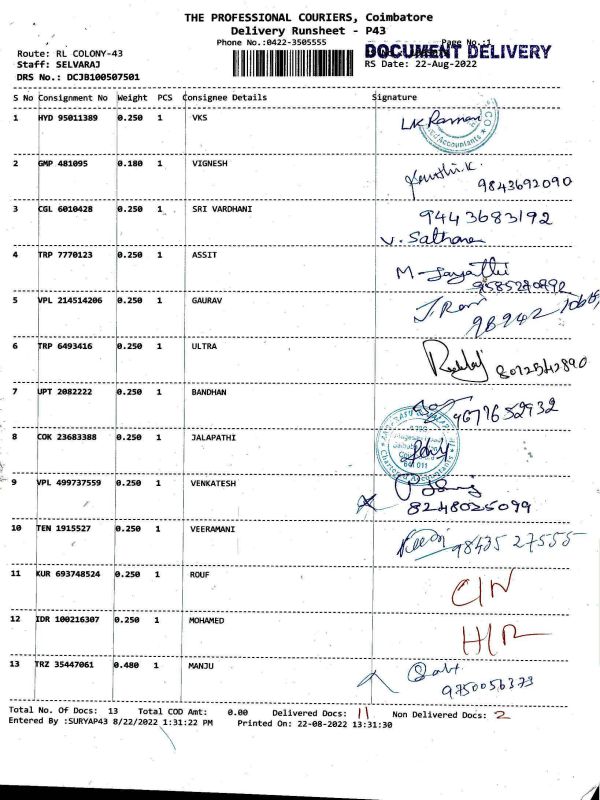 THE PROFESSIONAL COURIERS, Coimbatore
Delivery Runsheet - P43
Phone No.:0422-3505555
Page No.:1
Route: RL COLONY-43
DOCUMENT DELIVERY
Staff: SELVARAJ
RS Date: 22-Aug-2022
DRS No.: DCJB100507501
S No Consignment No Weight PCS Consignee Details Signature
1 HYD 95011389 0.250 1 VKS
Accountants
2 GMP 481095 0.180 1 VIGNESH
9843692090
3 CGL 6010428 0.250 1 SRI VARDHANI 9443683192
V. Sathana
4 TRP 7770123 0.250 1 ASSIT M-Jayathi
5 VPL 214514206 0.250 1 GAURAV J. Ravi
6 TRP 6493416 0.250 1 ULTRA
8072542890
7 UPT 2082222 0.250 1 BANDHAN 9677652932
8 COK 23683388 0.250 1 JALAPATHI
641 011
Chartered Accountants
9 VPL 499737559 0.250 1 VENKATESH
8248025099
10 TEN 1915527 0.250 1 VEERAMANI 98435 27555
11 KUR 693748524 0.250 1 ROUF
12 IDR 100216307 0.250 1 MOHAMED
13 TRZ 35447061 0.480 1 MANJU
9750056373
Total No. Of Docs: 13 Total COD Amt: 0.00 Delivered Docs: 11 Non Delivered Docs: 2
Entered By :SURYAP43 8/22/2022 1:31:22 PM Printed On: 22-08-2022 13:31:30